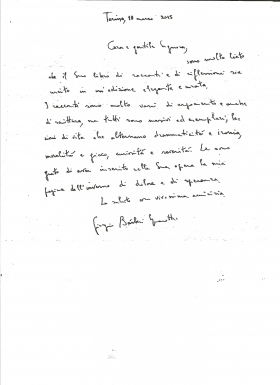 Torino, 18 marzo 2015
Cara e gentile Signora,
sono molto lieto
che il Suo libro di racconti e di riflessioni sia
uscito in un'edizione elegante e curata.
I racconti sono molto vari di argomento e anche
di scrittura, ma tutti sono nuovi ed esemplari, le
di vita che alternano drammaticità e ironia,
moralità e gioco, e serenità. Le sono
grato di aver inserito nella Sua opera la mia
pagina dell'inverno di dolore e di speranza.
La saluto con vivissima amicizia
Giorgio Bàrberi Squarotti